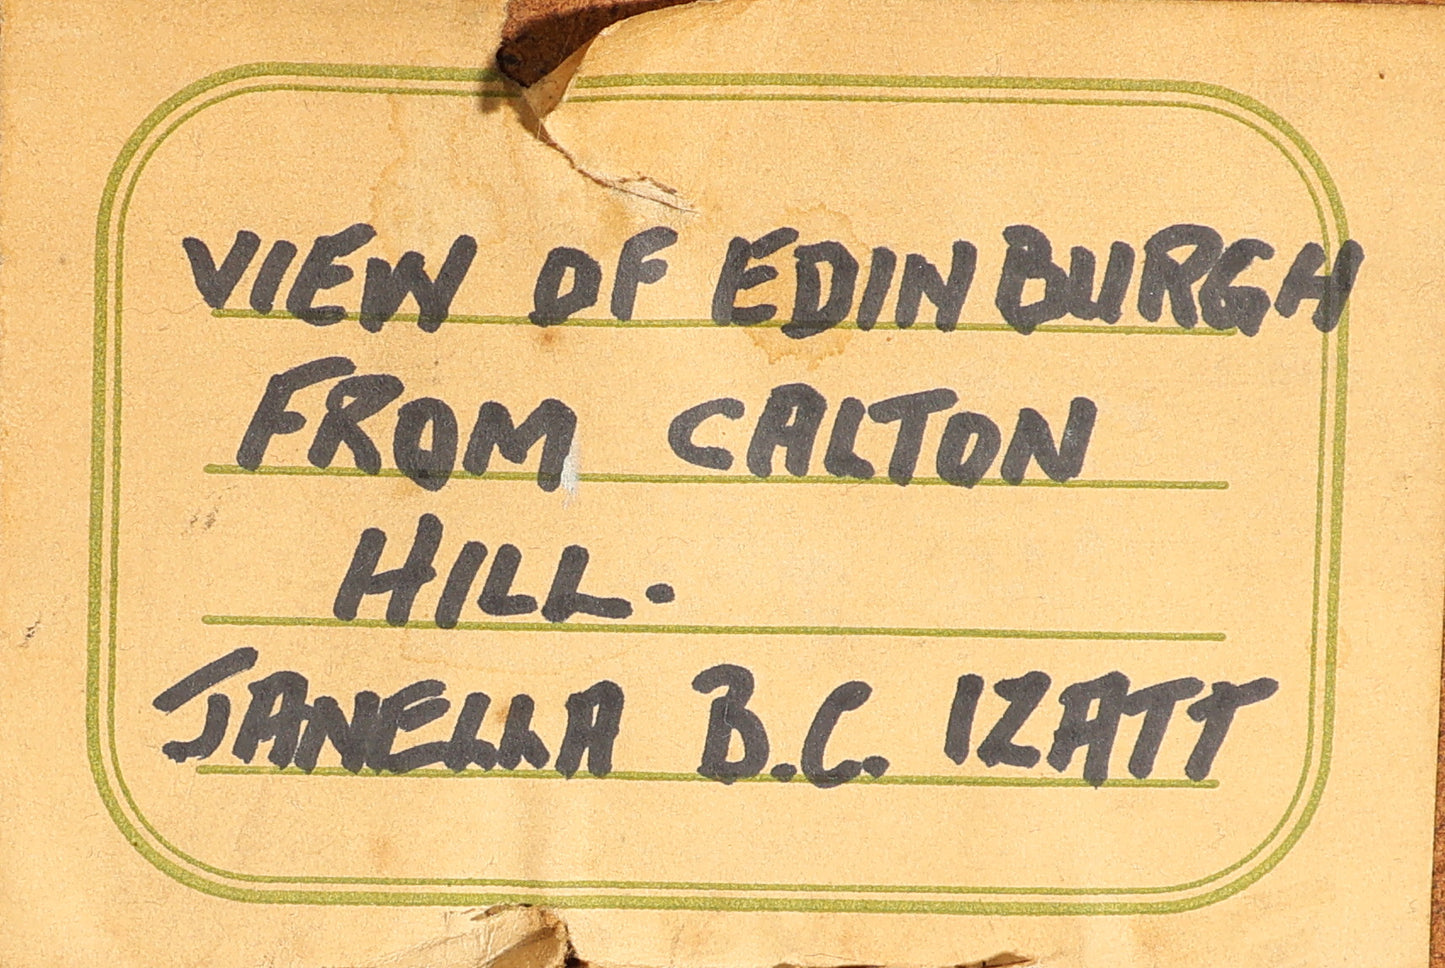 VIEW OF EDINBURGH
FROM CALTON
HILL.
JANELLA B.C. IZATT